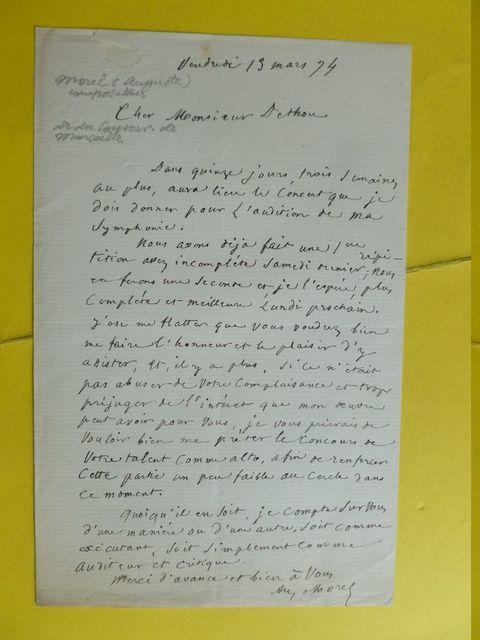 Vendredi 13 mars 74
Morel (Auguste)
compositeur
Cher Monsieur Dethou
dr du Conserv de
Marseille
Dans quinze jours, trois semaines
au plus, aura lieu le Concert que je
dois donner pour l'audition de ma
Symphonie.
Nous avons déjà fait une 1re répé-
tition assez incomplète Samedi dernier; nous
en ferons une seconde et, je l'espère, plus
Complète et meilleure Lundi prochain.
J'ose me flatter que vous voudrez bien
me faire l'honneur et le plaisir d'y
assister, Et, il y a plus, Si ce n'était
pas abuser de votre Complaisance et trop
préjuger de l'intérêt que mon œuvre
peut avoir pour Vous, je vous prierais de
Vouloir bien me prêter le Concours de
Votre talent Comme alto, afin de renforcer
Cette partie un peu faible au Cercle dans
ce moment.
Quoiqu'il en soit, je Compte Sur Vous
d'une manière ou d'une autre, Soit comme
exécutant, Soit Simplement Comme
auditeur et Critique.
Merci d'avance et bien à Vous
Aug Morel